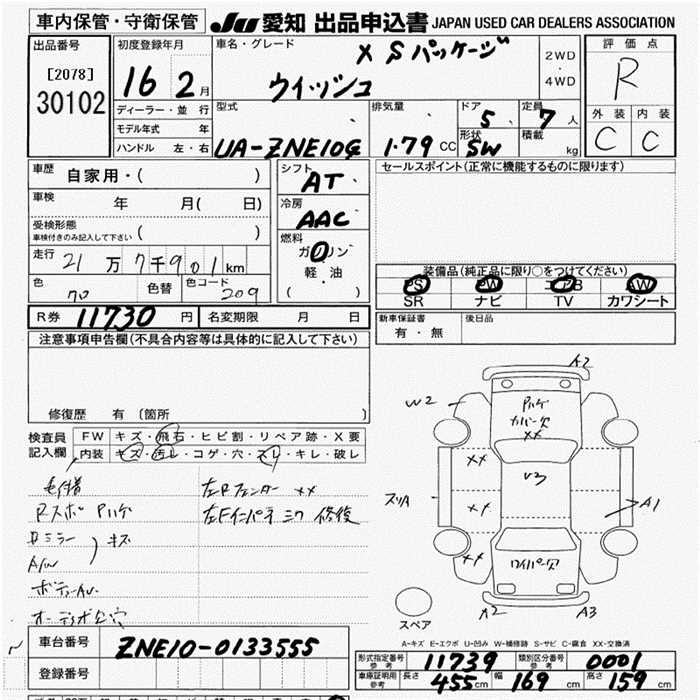 車内保管・守衛保管 JU 愛知 出品申込書 JAPAN USED CAR DEALERS ASSOCIATION
出品番号
[2078]
30102
初度登録年月
16 2月
ディーラー・並行
モデル年式 年
ハンドル 左・右
車名・グレード
X Sパッケージ
ウィッシュ
2WD
・
4WD
型式
UA-ZNE10G
排気量
1.79 CC
ドア
5
定員
7人
形状
SW
積載
kg
評価点
R
外装 内装
C C
車歴 自家用・( )
車検 年 月( 日)
受検形態
車検付きのみ記入して下さい ( )
走行 21万7千901km
色 70 色替 色コード 209
シフト
AT
冷房
AAC
燃料
ガソリン
軽・油
( )
R券 11730円 名変期限 月 日
セールスポイント(正常に機能するものに限ります)
装備品(純正品に限り○をつけてください)
PS PW エアB AW
SR ナビ TV カワシート
新車保証書
有・無
後日品
注意事項申告欄(不具合内容等は具体的に記入して下さい)
修復歴 有 〔箇所 〕
検査員
記入欄
FW キズ・飛石・ヒビ割・リペア跡・X要
内装 キズ・汚レ・コゲ・穴・スレ・キレ・破レ
Rスポ Pハゲ
ミラー
A/W
キズ
オーディオ欠 穴
左Rフェンダー XX
左Fインパネ ミワ 修復
A2
W2
Pハゲ
カバー欠
XX
XX
U3
スリA
XX
A1
XX
ワイパー欠
A2
A3
スペア
A-キズ E-エクボ U-凹み W-補修跡 S-サビ C-腐食 XX-交換済
車台番号 ZNE10-0133555
登録番号
形式指定番号
参考
11739
類別区分番号
参考
0001
車庫証明用
参考
長さ 455cm 幅 169cm 高さ 159cm